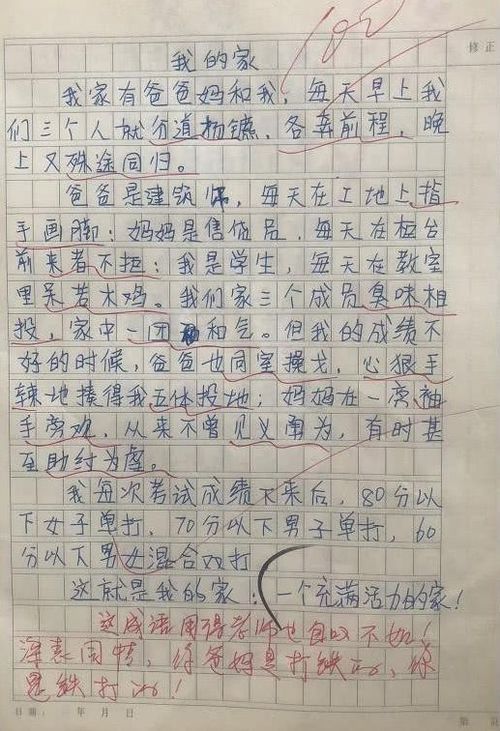 100
修正
我的家
我家有爸爸妈和我，每天早上我
们三个人就分道扬镳，各奔前程，晚
上又殊途同归。
爸爸是建筑师，每天在工地上指
手画脚；妈妈是售货员，每天在柜台
前来者不拒；我是学生，每天在教室
里呆若木鸡。我们家三个成员臭味相
投，家中一团和气。但我的成绩不
好的时候，爸爸也同室操戈，心狠手
辣地揍得我五体投地；妈妈在一旁袖
手旁观，从来不曾见义勇为，有时甚
至助纣为虐。
我每次考试成绩下来后，80分以
下女子单打，70分以下男子单打，60
分以下男女混合双打
这就是我的家：一个充满活力的家！
这成语用得老师也自叹不如！
深表同情，你爸妈是打铁的，你
是铁打的！
日期： 年 月 日
第 页